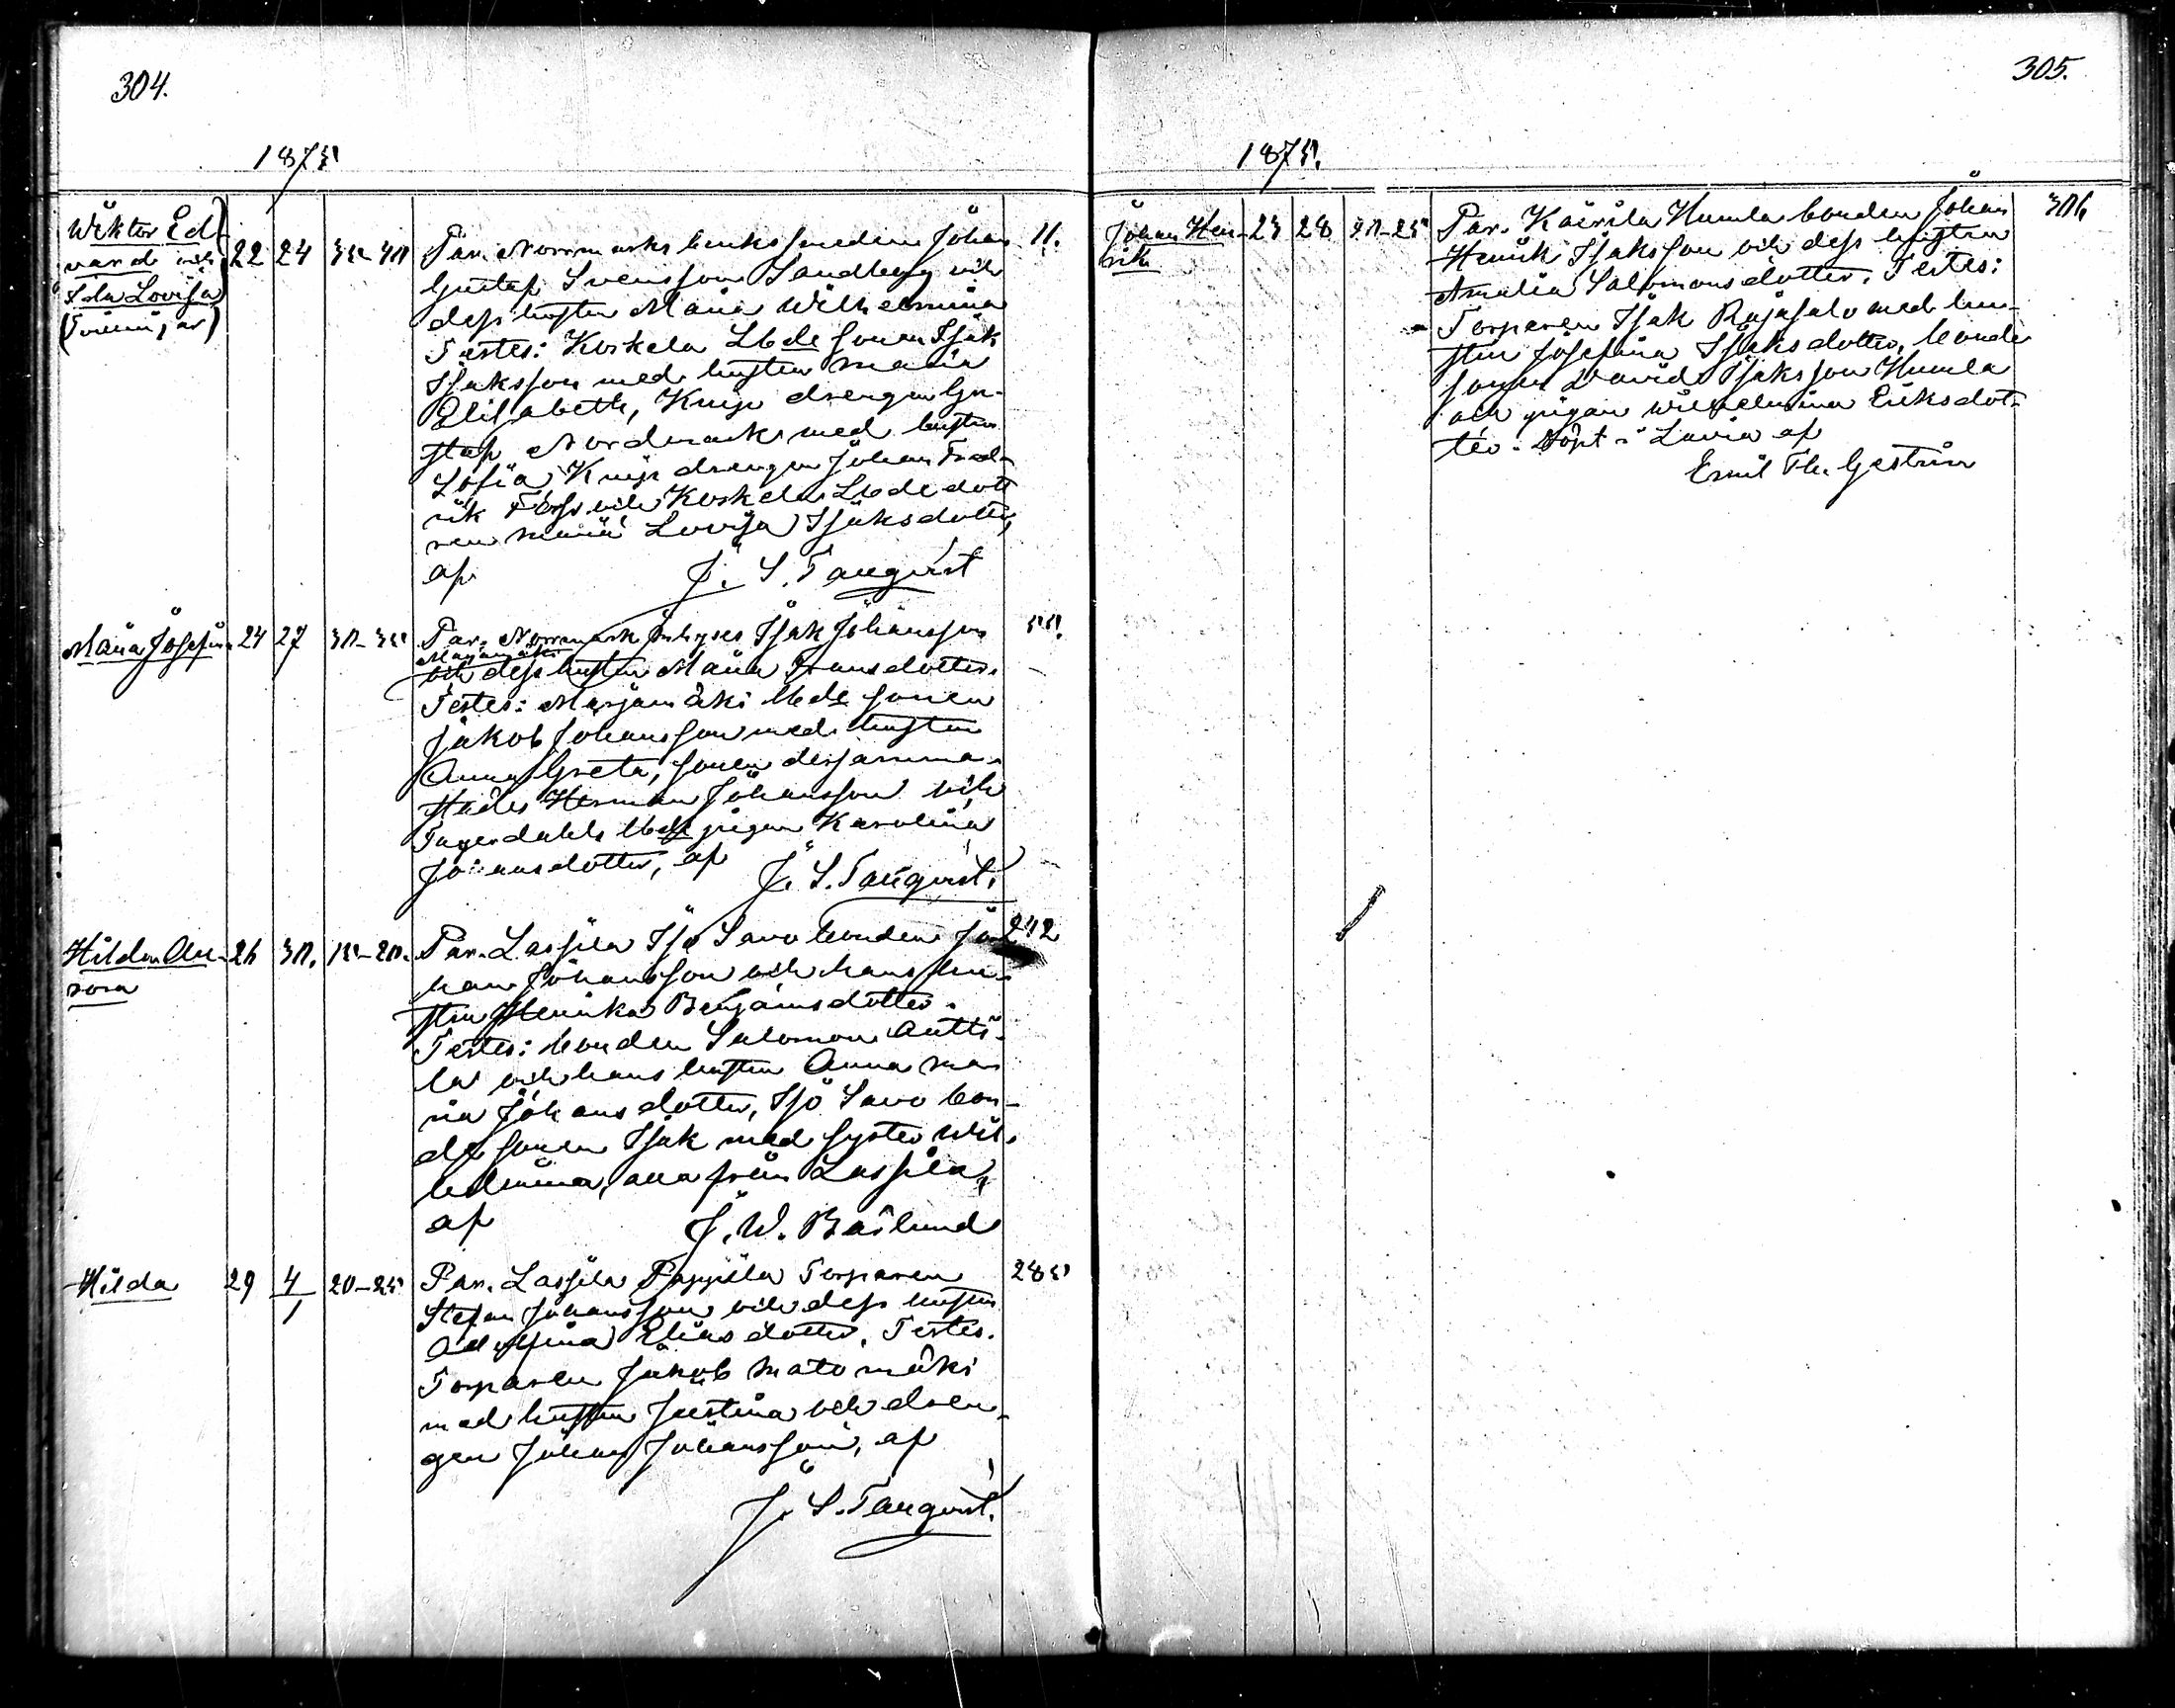 304.
1875
Wiktor Ed-
vard och
Ida Lovisa
(Tvillingar)
22 24 35-40
Par. Norrmarks bruks smeden Johan
Gustaf Svensson Sandberg och
dess hustru Maria Wilhelmina
Testes: Koskela Lbde sonen Isak
Isaksson med hustru Maria
Elisabeth, Knip drengen Gu-
staf Nordmark med hustru
Sofia, Knip drengen Johan Fred-
rik Forss och Koskela Lbde dott
ren Maria Lovisa Isaksdotter,
af J. S. Tanqvist
11.
Maria Josefina 24 27 30-35
Par. Norrmark Inhyses Isak Johansson
Marjamäki
och dess hustru Maria Fransdotter.
Testes: Marjamäki lbde sonen
Jakob Johansson med hustru
Anna Greta, sonen dersamma-
städes Herman Johansson och
Tagerdahls lbde pigan Karolina
Johansdotter, af J. S. Tanqvist.
55.
Hilda Au-
rora
26 30. 15-20.
Par. Lassila Iso Savo bonden Jo-
han Johansson och hans hu-
stru Henrika Benjamsdotter.
Testes: bonden Salomon Antti-
la och hans hustru Anna Ma-
ria Johansdotter, Iso Savo bon-
de sonen Isak med syster Wil-
helmina, alla från Lassila,
af J. W. Baslund
242
Hilda 29 4/1 20-25
Par. Lassila Pappila Torparen
Stefan Johansson och dess hustru
Adolfina Eliasdotter. Testes.
Torparen Jakob Matomäki
med hustru Justina och dren-
gen Johan Johansson, af
J. S. Tanqvist.
285
305.
1875.
Johan Hen-
rik
23 28 20-25
Par. Kairila Humla bonden Johan
Henrik Isaksson och dess hustru
Amalia Salomonsdotter. Testes:
Torparen Isak Rajasalo med hu-
stru Josefina Isaksdotter, bonde
sonen David Isaksson Humla
och pigan Wilhelmina Eriksdot-
ter. Döpt i Lavia af
Emil Th. Gestrin
306